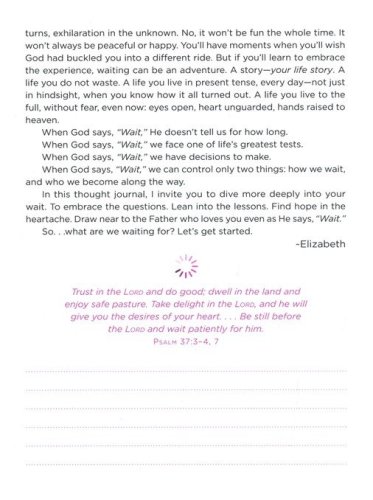 turns, exhilaration in the unknown. No, it won't be fun the whole time. It
won't always be peaceful or happy. You'll have moments when you'll wish
God had buckled you into a different ride. But if you'll learn to embrace
the experience, waiting can be an adventure. A story—your life story. A
life you do not waste. A life you live in present tense, every day—not just
in hindsight, when you know how it all turned out. A life you live to the
full, without fear, even now: eyes open, heart unguarded, hands raised to
heaven.
When God says, "Wait," He doesn't tell us for how long.
When God says, "Wait," we face one of life's greatest tests.
When God says, "Wait," we have decisions to make.
When God says, "Wait," we can control only two things: how we wait,
and who we become along the way.
In this thought journal, I invite you to dive more deeply into your
wait. To embrace the questions. Lean into the lessons. Find hope in the
heartache. Draw near to the Father who loves you even as He says, "Wait."
So. . .what are we waiting for? Let's get started.
~Elizabeth
Trust in the LORD and do good; dwell in the land and
enjoy safe pasture. Take delight in the LORD, and he will
give you the desires of your heart. . . . Be still before
the LORD and wait patiently for him.
PSALM 37:3–4, 7